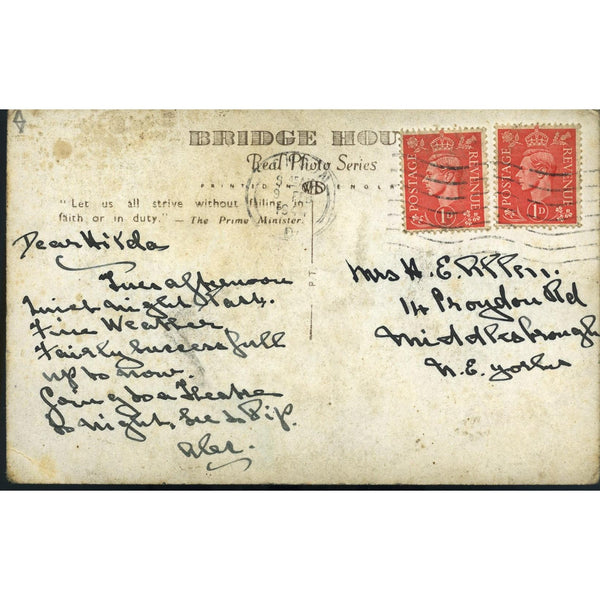 BRIDGE HOU
Real Photo Series
PRINTED IN ENGLA
"Let us all strive without failing in
faith or in duty." — The Prime Minister.
POSTAGE REVENUE
1D
POSTAGE REVENUE
1D
Dear Hilda
Tues afternoon
Fine Weather
Fairly successfull
up to now.
Going to a Theatre
to night,
Mrs H. E.
14 Croydon Rd
Middlesbrough
N.E. Yorks
P.T.